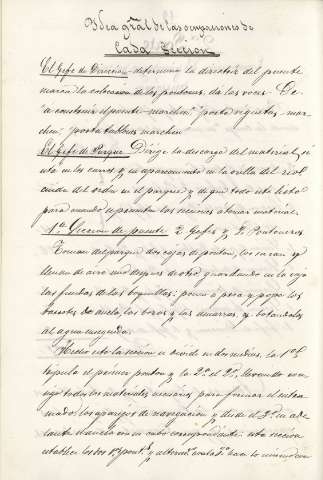 Idea gral de las ocupaciones de
cada Sección
El Gefe de Dirección determina la directriz del puente
marca la colocacion de los pontones, da las voces. De
"a construir el puente - marchen" "porta viguetas, mar-
chen" "porta tablones marchen
El Gefe de Parque Dirige la descarga del material, si
esta en los carros y su aparcamiento en la orilla del rio,
cuida del orden en el parque y de que todo este listo
para cuando se presenten las secciones a tomar material.
1ª Sección de puente 2 Gefes y Pontoneros
Toman del parque dos cajas de ponton, los sacan y
llenan de aire uno despues de otro guardando en la caja
las fundas de las boquillas: ponen a proa y popa los
basates de ancla, las boras y las amarras, y botandolos
al agua enseguida.
Hecho esto la sección se divide en dos medias, la 1ª
tripula el primer ponton y la 2ª el 2º, llevando con-
sigo todos los materiales necesarios para formar el entra-
mado, los aparejos de navegacion y desde el 3º en ade-
lante el ancla con su cabo correspondiente: esta seccion
establece los dos 1os pont.s y